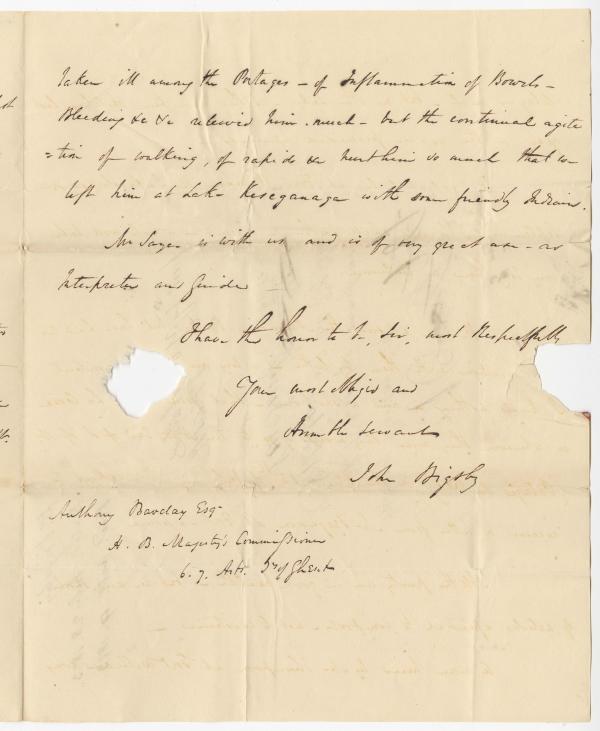 taken ill among the Portages – of Inflammation of Bowels –
Bleeding &c &c relieved him much – but the continual agita
=tion of walking, of rapids &c hurt him so much that we
left him at Lake Keseganaga with some friendly Indians.
Mr Sayer is with us and is of very great use – as
Interpreter and Guide –
I have the honor to be, Sir, most Respectfully
Your most obliged and
Humble servant
John Bigsby
Anthony Barclay Esqr
H. B. Majesty's Commissioner
6. 7. Arts. Ty of Ghent